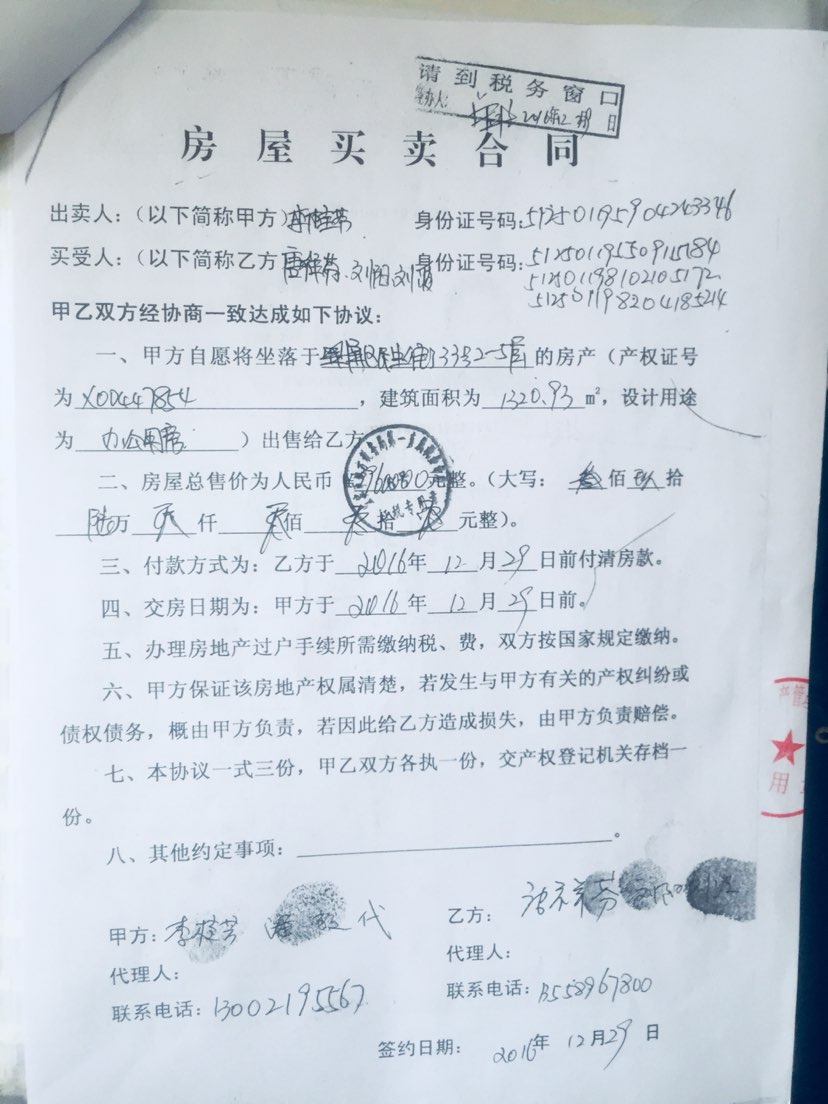 请到税务窗口
经办人: 2016年12月 日
房屋买卖合同
出卖人：（以下简称甲方）李桂芳 身份证号码：512501195904243346
买受人：（以下简称乙方） 刘阳 身份证号码：
512501198102105172
512501198204185214
甲乙双方经协商一致达成如下协议：
一、甲方自愿将坐落于 的房产（产权证号
为X00447854，建筑面积为1320.93m²，设计用途
为办公用房）出售给乙方
二、房屋总售价为人民币 元整。（大写：叁佰玖拾
陆万 仟 佰 拾 元整）。
三、付款方式为：乙方于2016年12月29日前付清房款。
四、交房日期为：甲方于2016年12月29日前。
五、办理房地产过户手续所需缴纳税、费，双方按国家规定缴纳。
六、甲方保证该房地产权属清楚，若发生与甲方有关的产权纠纷或
债权债务，概由甲方负责，若因此给乙方造成损失，由甲方负责赔偿。
七、本协议一式三份，甲乙双方各执一份，交产权登记机关存档一
份。
八、其他约定事项：。
甲方：李桂芳 代 乙方：
代理人： 代理人：
联系电话：13002195567 联系电话：13558967800
签约日期： 2016年12月29日
用